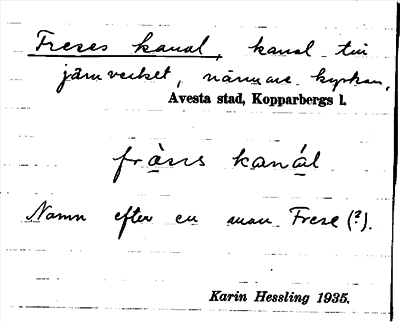 Freses kanal, kanal till
järnverket, närmare kyrkan,
Avesta stad, Kopparbergs l.
fràns kanál
Namn efter en man Frese (?).
Karin Hessling 1935.